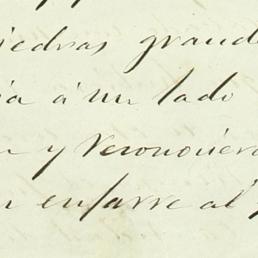 iedras grande
ia á un lado
y reconocier
en/arre al